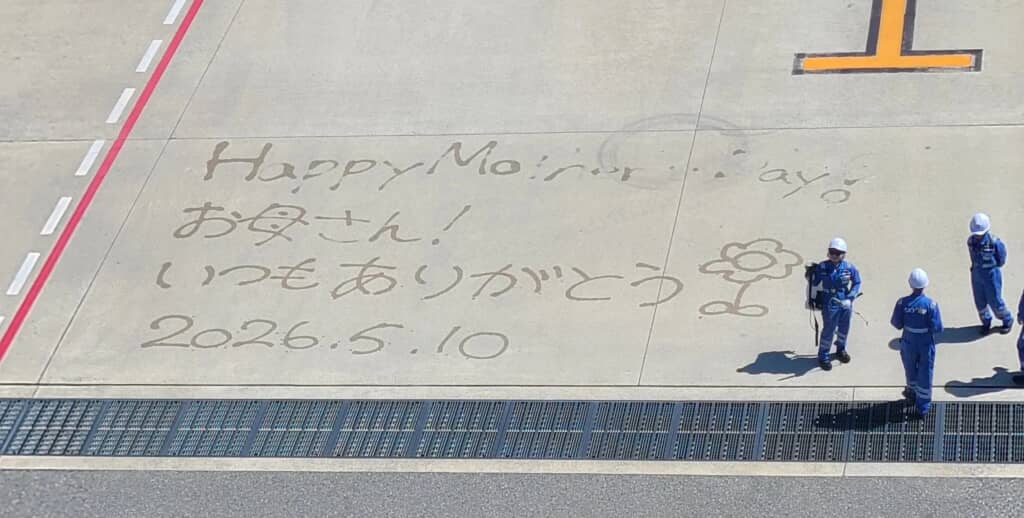 Happy Mother Day
お母さん！
いつもありがとう
2026.5.10